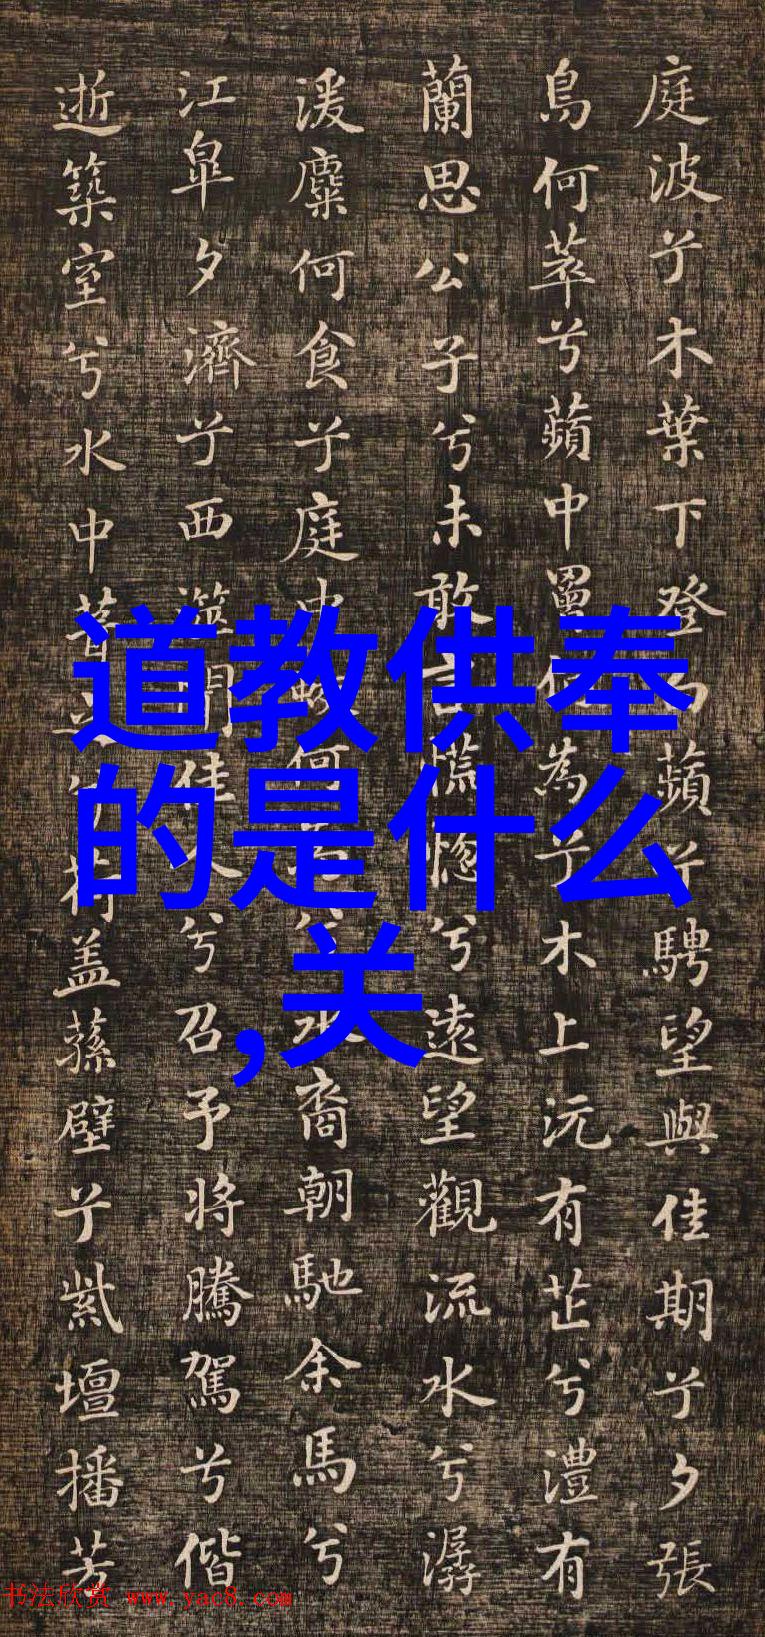 庭波兮木葉下登白蘋兮騁望與佳期兮夕張
鳥何萃兮蘋中罾何為兮木上沅有芷兮澧有
蘭思公子兮未敢言慌惚兮遠望觀流水兮潺
湲麋何食兮庭中蛟何為兮水裔朝馳余馬兮
江皐夕濟兮西澨聞佳人兮召予將騰駕兮偕
逝築室兮水中葺之兮荷盖蓀壁兮紫壇播芳
道教供奉
的是什么
,关
书法欣赏 www.yac8.com